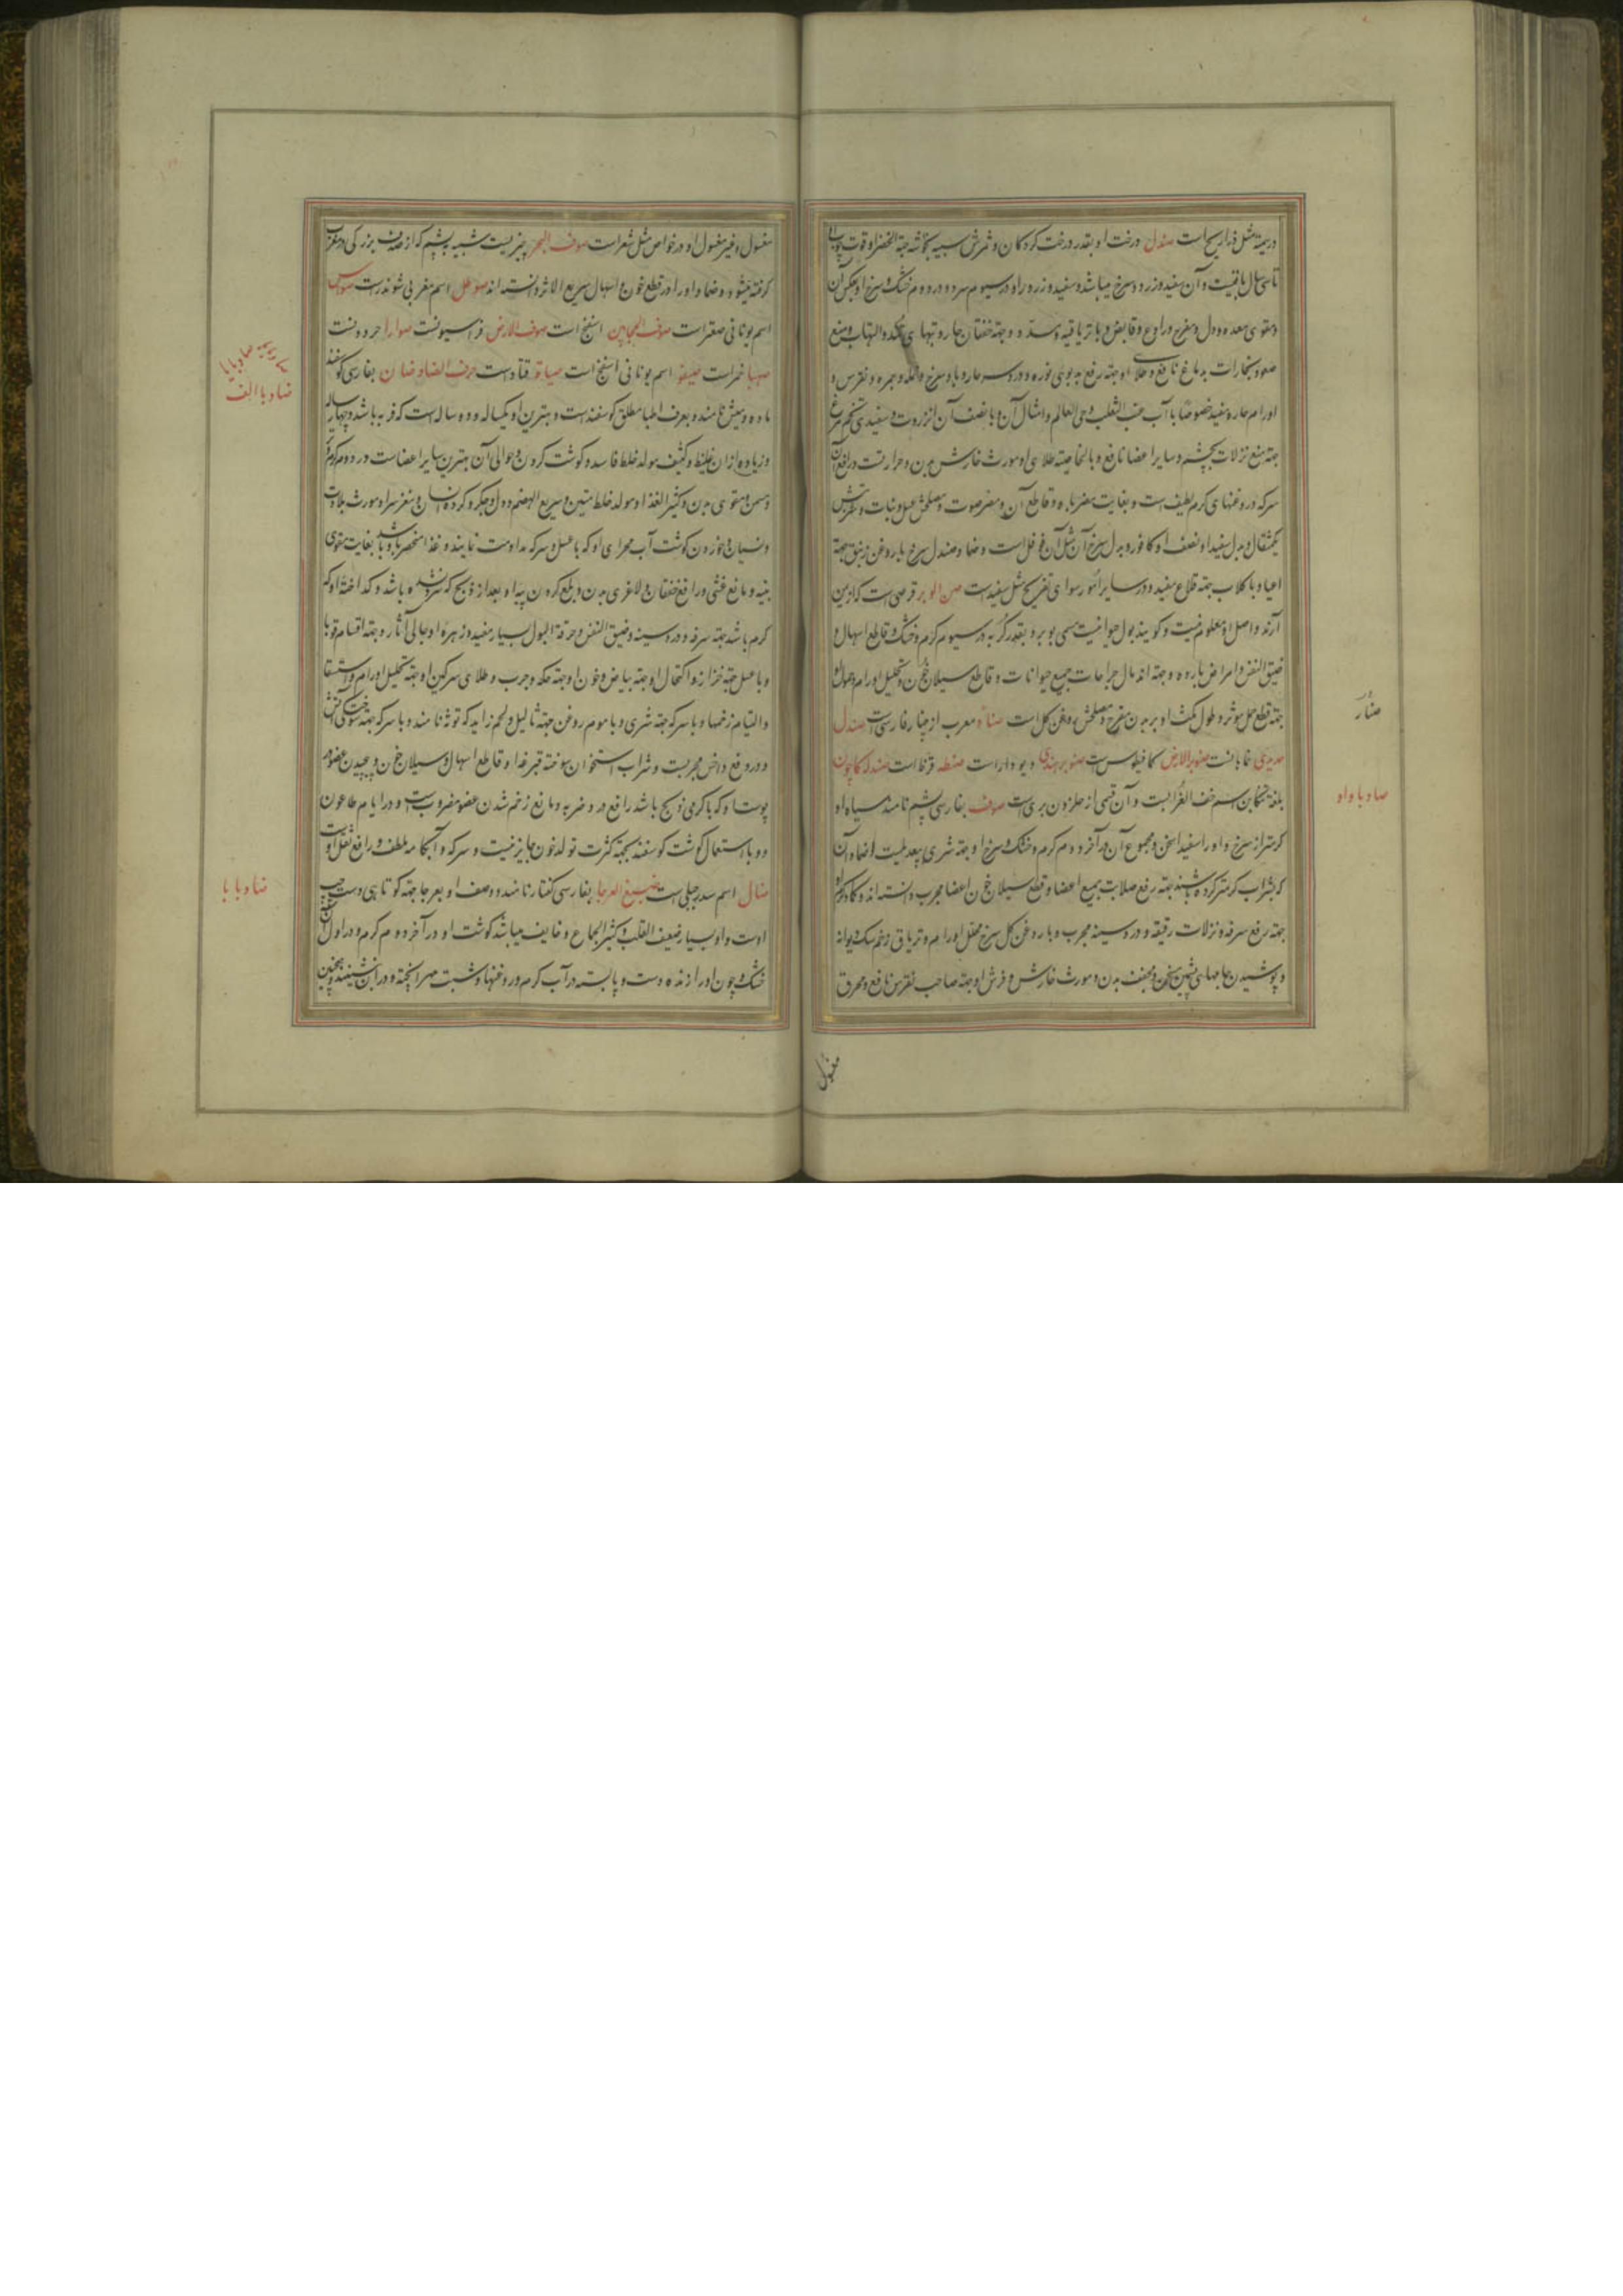 در سمیة مثل ذراریح است صندل درخت او بقدر درخت کردکان و ثمرش شبیه بخوشه حبة الخضرا و قوت چوب او
تا سی سال باقیست و آن سفید و زرد و سرخ میباشد و سفید و زرد او در سیوم سرد و در دوم خشک و سرخ او بعکس آن
و مقوی معده و دل و مفرح و رادع و قابض و با تریاقیه و سدد و جهة خفقان حار و تبهای تند و التهاب و منع
صعود بخارات بدماغ نافع و طلای او جهة رفع بدبوئی نوره و درد سر حار و باد سرخ و نمله و جمره و نقرس و
اورام حاره مفید خصوصا با آب عنب الثعلب و حی العالم و امثال آن و با نصف آن انزروت و سفیدی تخم مرغ
جهة منع نزلات بچشم و سایر اعضا نافع و بالخاصیة طلای او مورث خارش بدن و حرارتست و رافع آن
سرکه و روغنهای کرم لطیف است و بغایت مضر باه و قاطع آن و مضر صوت و مصلحش عسل و نبات و شربتش
یکمثقال و بدل سفید او نصف او کافور و بدل سرخ آن مثل آن فوفل است و ضماد صندل سرخ با روغن زنبق جهة
اعیا و با کلاب جهة قلاع مفید و در سایر امور سوای تفریح مثل سفید است صن الوبر قرصی است که از یمن
آرند و اصل او معلوم نیست و کویند بول حیوانیست مسمی بوبر و بقدر کربه در سیوم کرم و خشک و قاطع اسهال و
ضیق النفس و امراض بارده و جهة اندمال جراحات جمیع حیوانات و قاطع سیلان خون و تحلیل اورام و حمول او
جهة قطع حمل موثر و طول مکث او بر بدن مقرح و مصلحش روغن کل است صنار معرب از چنار فارسی است صندل
حدیدی خماهانست صنوبر الارض کمافیطوس است صنوبر هندی دیودار است صنطه قرظ است صندله کاچون
بلغة تنکابن اسم خف الغراب است و آن قسمی از حلزون بری است صوف بفارسی پشم نامند سیاه او
کرمتر از سرخ و او را سفید اسخن و مجموع آن در آخر دوم کرم و خشک و سرخ او جهة شری بیعدیلست و ضماد آن
که بشراب کرم تر کرده باشند جهة رفع صلابت جمیع اعضا و قطع سیلان خون اعضا مجرب دانسته اند و کماد کرم او
جهة رفع سرفه و نزلات رقیقه و درد سینه مجرب و با روغن کل سرخ محلل اورام و تریاق زخم سک دیوانه
و پوشیدن جامهای پشمین مسخن و مجفف بدن و مورث خارش و فرش او جهة صاحب نقرس نافع و محرق
مغسول
صنار
صاد با واو
مغسول و غیر مغسول او در خواص مثل شعر است صوف البحر چیزیست شبیه بپشم که از صدف بزرکی در مغرب
کرفته میشود و ضماد او را در قطع خون و اسهال سریع الاثر دانسته اند صوطل اسم مغربی شوندر است صوس
اسم یونانی صعتر است صوف الحجامین اسفنج است صوف الارض فراسیونست صوارا حردونست
صهبا خمر است صیفو اسم یونانی اسفنج است صیاقه قتاد است حرف الضاد ضان بفارسی کوسفند
ماده و میش نامند و بعرف اطبا مطلق کوسفند است و بهترین او یکساله و دو ساله است که فربه باشد و چهار ساله
و زیاده از ان غلیظ و کثیف مولد خلط فاسد و کوشت کردن و حوالی آن بهترین سایر اعضاست در دوم کرم و تر
و مسمن و مقوی بدن و کثیر الغذا و مولد خلط متین و سریع الهضم و دل و جکر و کرده انسان و مغز سر او مورث بلادت
و نسیان و خوردن کوشت آب مهرای او که با عسل و سرکه مداومت نمایند و غذا منحصر باو باشد بغایت مقوی
بنیه و مانع غشی و رافع خفقان و لاغری بدن و بلع کردن پیه او بعد از ذبح که سرد نشده باشد و کداخته او که
کرم باشد جهة سرفه و درد سینه و ضیق النفس و حرقة البول بسیار مفید و زهره او جالی آثار و جهة اقسام قوبا
و با عسل جهة خنازیر و اکتحال او جهة بیاض و خون او جهة حکه و جرب و طلای سرکین او جهة تحلیل اورام و استسقا
و التیام زخمها و با سرکه جهة شری و با موم روغن جهة ثالیل و لحم زاید که توثه نامند و با سرکه جهة سوختکی آتش
و در رفع داخس مجربست و شراب استخوان سوخته قبرغه او قاطع اسهال و سیلان خون و پیچیدن عضو در
پوست او که با کرمی ذبح باشد رافع درد ضربه و مانع زخم شدن عضو مضروبست و در ایام طاعون
و وبا استعمال کوشت کوسفند بجهة کثرت تولد خون جایز نیست و سرکه و آبکامه ملطف و رافع ثقل اوست
ضال اسم سدر جبلی است ضبغ العرجا بفارسی کفتار نامند و وصف او بعرجا جهة کوتاهی دست چپ
اوست و او بسیار ضعیف القلب و کثیر الجماع و خایف میباشد کوشت او در آخر دوم کرم و در اول آن
خشک و چون او را زنده دست و پا بسته در آب کرم و روغنها و شبت مهرا پخته و در آن نشینند و همچنین
صاد با یا
ضاد با الف
ضاد با با